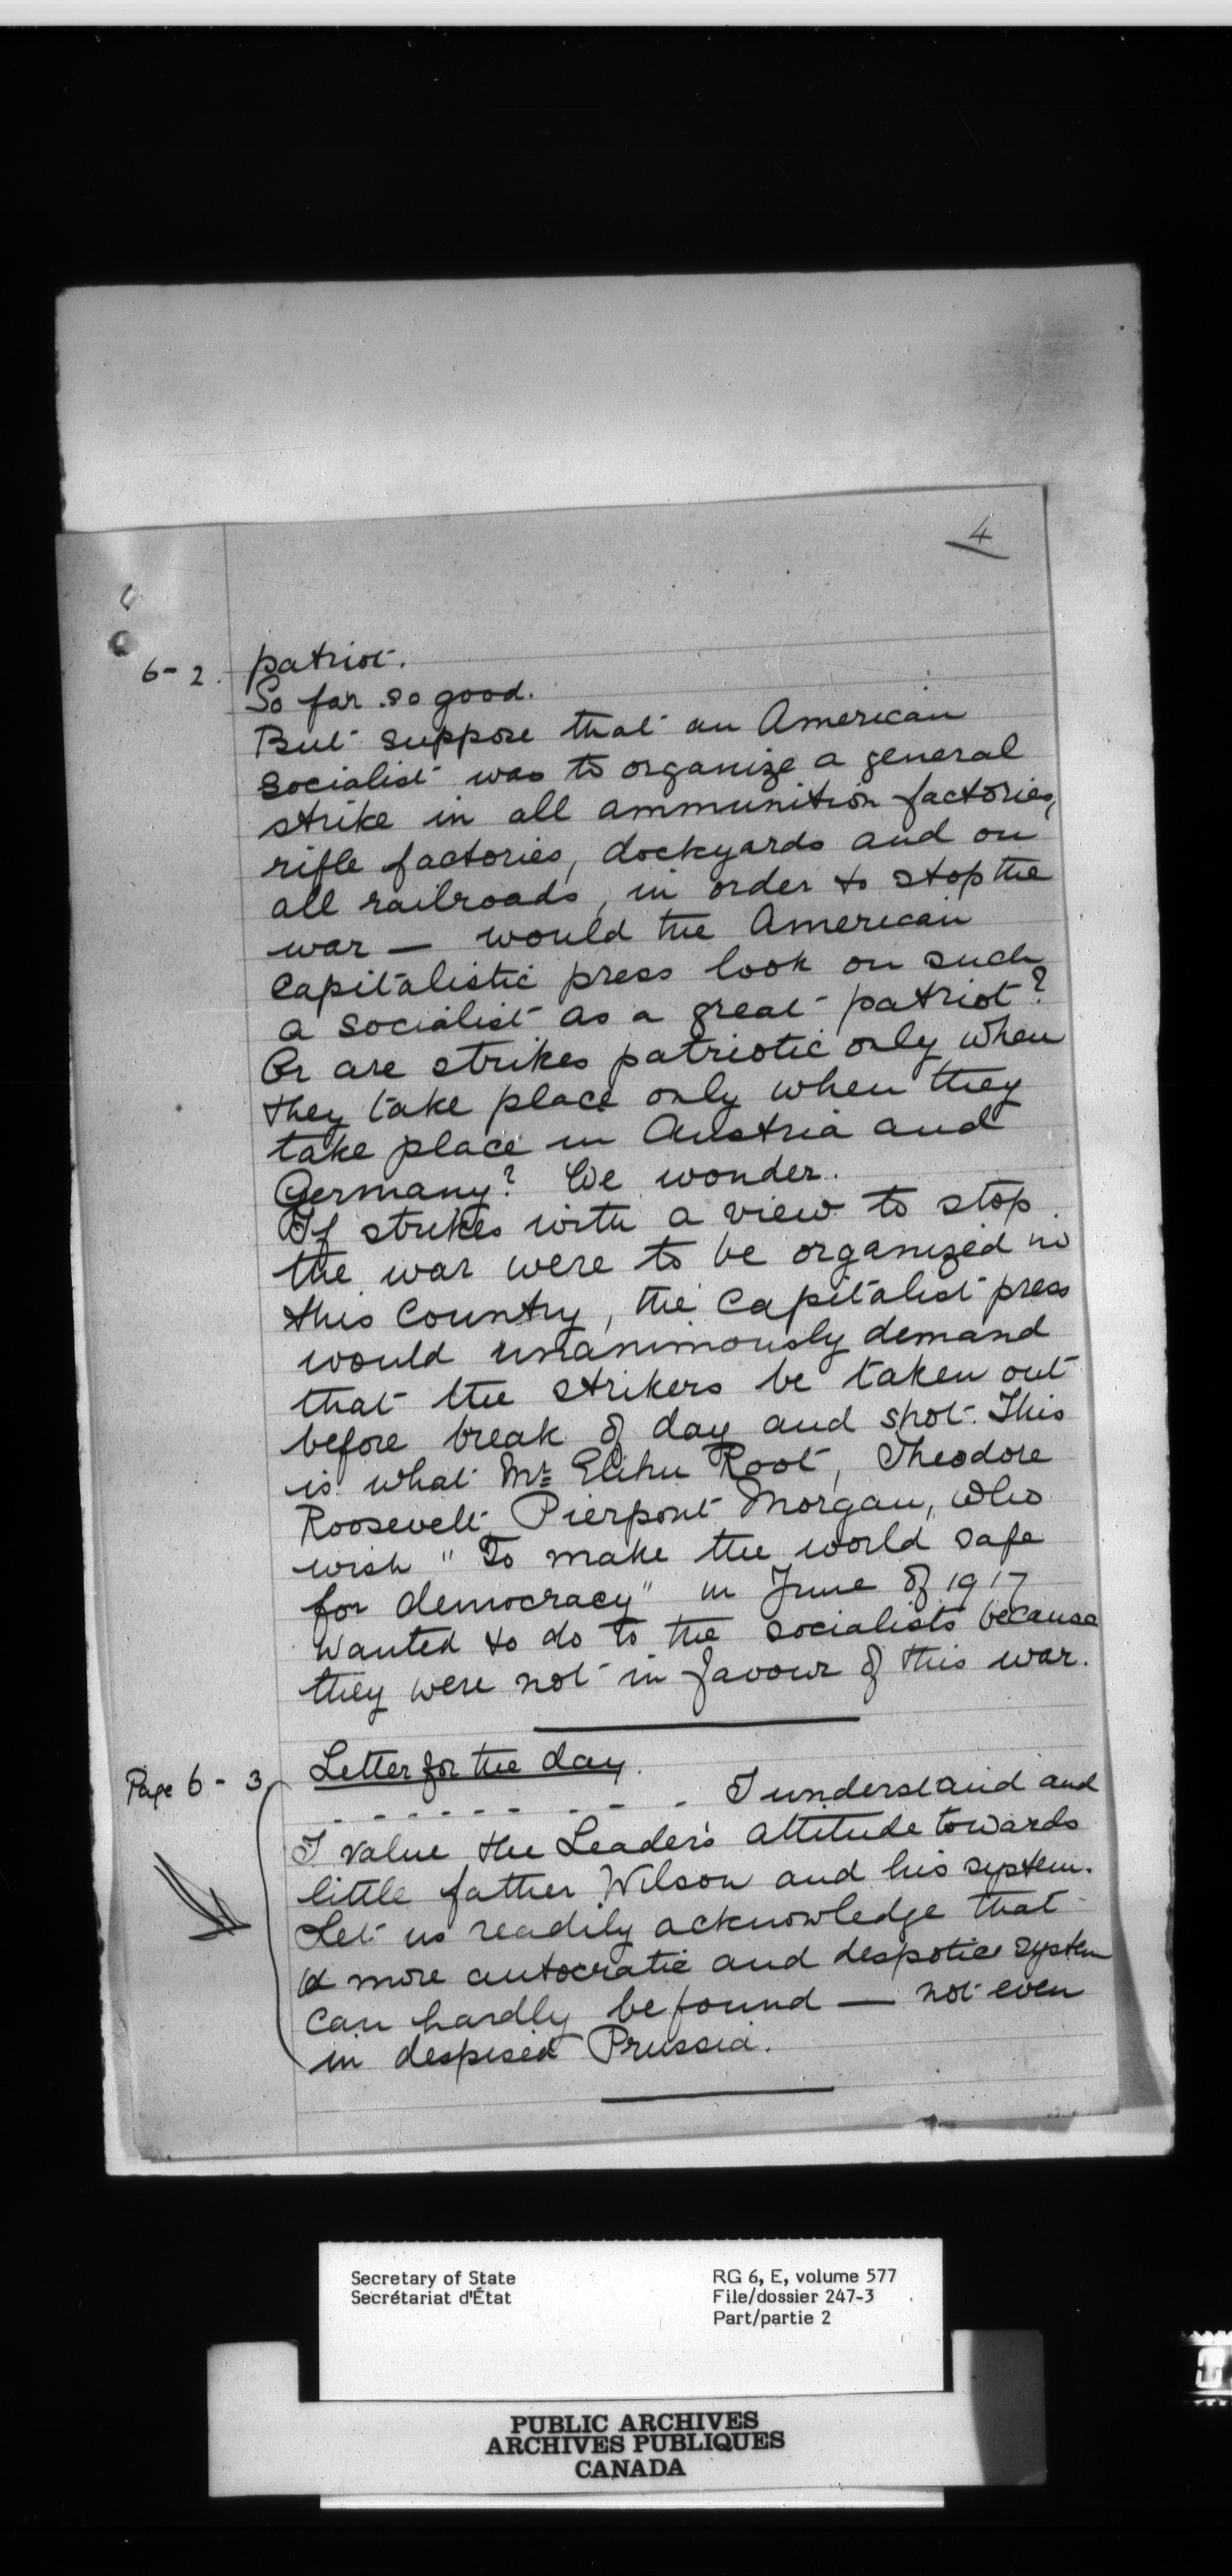 4
6-2. patriot.
So far so good.
But suppose that an American
socialist was to organize a general
strike in all ammunition factories,
rifle factories, dockyards and on
all railroads, in order to stop the
war — would the American
capitalistic press look on such
a socialist as a great patriot?
Or are strikes patriotic only when
they take place only when they
take place in Austria and
Germany? We wonder.
If strikes with a view to stop
the war were to be organized in
this country, the capitalist press
would unanimously demand
that the strikers be taken out
before break of day and shot. This
is what Mr. Elihu Root, Theodore
Roosevelt, Pierpont Morgan, who
wish "To make the world safe
for democracy" in June of 1917
wanted to do to the socialists because
they were not in favour of this war.
Page 6-3 Letter for the day.
. - - - - - - - - - - I understand and
I value the Leader's attitude towards
little father Wilson and his system.
Let us readily acknowledge that
a more autocratic and despotic system
can hardly be found — not even
in despised Prussia.
Secretary of State
Secrétariat d'État
RG 6, E, volume 577
File/dossier 247-3
Part/partie 2
PUBLIC ARCHIVES
ARCHIVES PUBLIQUES
CANADA